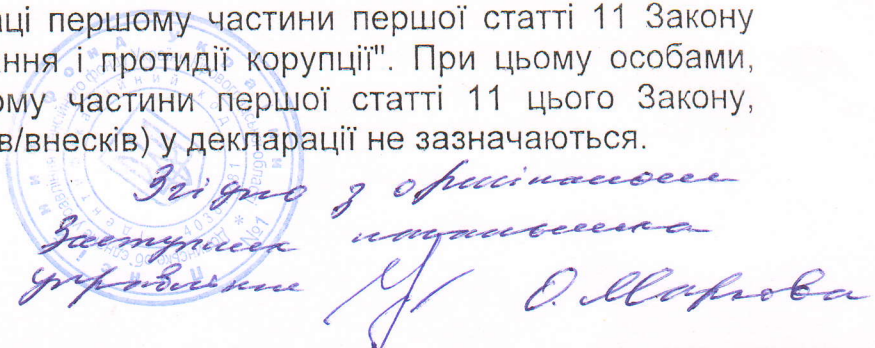 аці першому частини першої статті 11 Закону
ння і протидії корупції". При цьому особами,
ому частини першої статті 11 цього Закону,
в/внесків) у декларації не зазначаються.
Згідно з оригіналом
Заступник начальника
управління О. Маркова